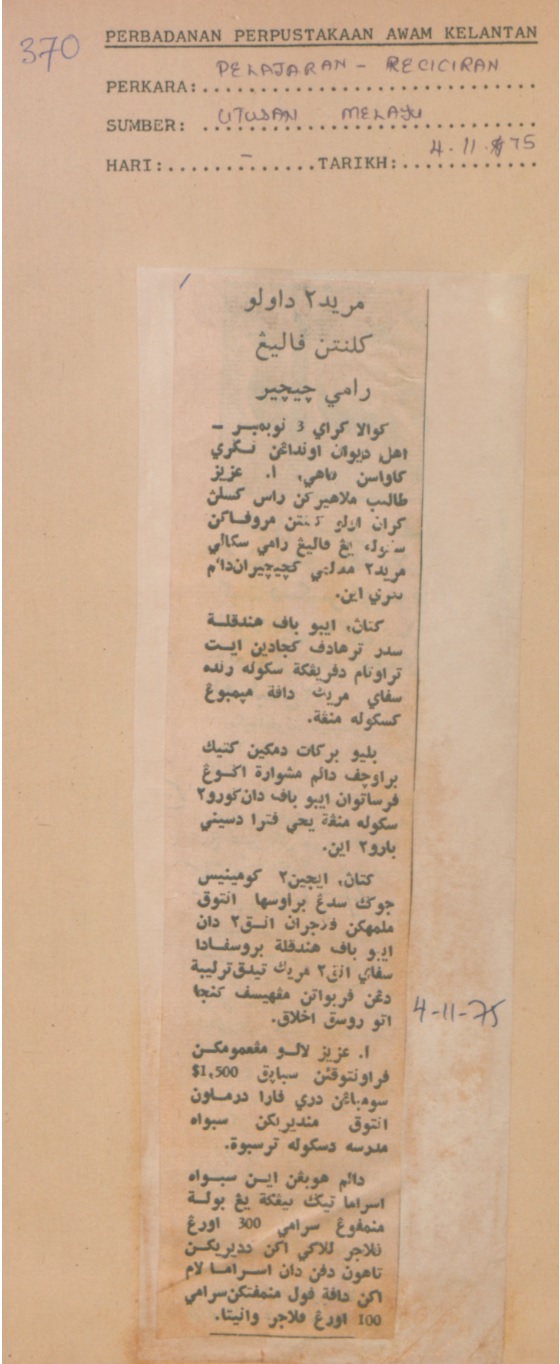 370
PERBADANAN PERPUSTAKAAN AWAM KELANTAN
PERKARA: PELAJARAN - RECICIRAN
SUMBER: UTUSAN MELAYU
HARI: - TARIKH: 4.11.75
مريد٢ داولو
كلنتن فاليڠ
رامي چيچير
كوالا كراي 3 نوبمبر –
اهل ديوان اوندڠن نݢري
كاواسن ڤاهي، ا. عزيز
طالب ملاهيركن راس كسلن
كران اولو كلنتن مروفاكن
يڠ فاليڠ رامي سكالي
مريد٢ كچيچيران دالم
نݢري اين.
كتاڽ، ايبو باف هندقلة
سدر ترهادف كجادين ايت
تراوتام دفريڠكة سكوله رنده
سفاي مريك دافة مڽمبوڠ
كسكوله منڠه.
بليو بركات دمكين كتيك
براوچف دالم مشوارة اݢوڠ
فرساتوان ايبو باف دان ݢورو٢
سكوله منڠه يحي فترا دسيني
بارو٢ اين.
كتاڽ، ايجين٢ كومينيس
جوݢ سدڠ براوسها انتوق
ملمهكن فلاجران انق٢ دان
ايبو باف هندقلة بروسفادا
سفاي انق٢ مريك تيدق ترليبة
دڠن فربواتن مڠهيسف ݢنجا
اتو روسق اخلاق.
ا. عزيز لالو مڠعمومكن
فراونتوقن سباڽق $1,500
سومباڠن دري فارا درماون
انتوق منديريكن سبواه
مدرسه دسكوله ترسبوة.
دالم هوبڠن اين سبواه
اسراما تيݢ تيڠكة يڠ بولة
منمفوڠ سرامي 300 اورڠ
فلاجر للاكي اكن دديريكن
تاهون دفن دان اسراما لام
اكن دافة فول منمفتكن سرامي
100 اورڠ فلاجر وانيتا.
4-11-75